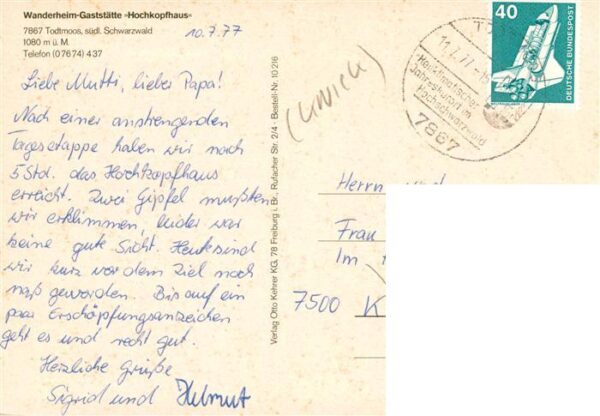 Wanderheim-Gaststätte »Hochkopfhaus«
7867 Todtmoos, südl. Schwarzwald
1080 m ü. M.
Telefon (0 76 74) 4 37
10.7.77
Liebe Mutti, lieber Papa!
Nach einer anstrengenden
Tagesetappe haben wir nach
5 Std. das Hochkopfhaus
erreicht. Zwei Gipfel mußten
wir erklimmen, leider war
keine gute Sicht. Heute sind
wir kurz vor dem Ziel noch
naß geworden. Bis auf ein
paar Erschöpfungsanzeichen
geht es uns recht gut.
Herzliche Grüße
Sigrid und Helmut
Verlag Otto Kehrer KG, 78 Freiburg i. Br., Rufacher Str. 2/4 · Bestell-Nr. 10 216
11.7.77
Heilklimatischer
Jahreskurort im
Hochschwarzwald
7867
40
DEUTSCHE BUNDESPOST
Herrn
Frau
Im
7500 K